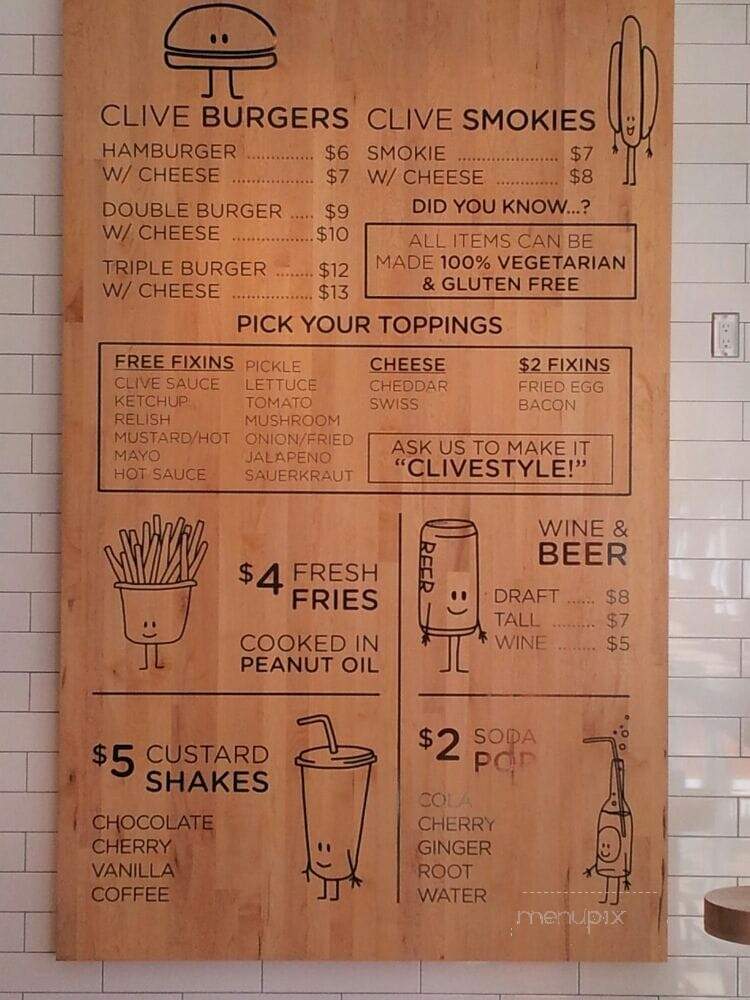 CLIVE BURGERS
HAMBURGER .............. $6
W/ CHEESE ................. $7
DOUBLE BURGER ..... $9
W/ CHEESE .................$10
TRIPLE BURGER ........ $12
W/ CHEESE ................. $13
CLIVE SMOKIES
SMOKIE ..................... $7
W/ CHEESE ............. $8
DID YOU KNOW...?
ALL ITEMS CAN BE
MADE 100% VEGETARIAN
& GLUTEN FREE
PICK YOUR TOPPINGS
FREE FIXINS
CLIVE SAUCE
KETCHUP
RELISH
MUSTARD/HOT
MAYO
HOT SAUCE
PICKLE
LETTUCE
TOMATO
MUSHROOM
ONION/FRIED
JALAPENO
SAUERKRAUT
CHEESE
CHEDDAR
SWISS
$2 FIXINS
FRIED EGG
BACON
ASK US TO MAKE IT
"CLIVESTYLE!"
$4 FRESH
FRIES
COOKED IN
PEANUT OIL
BEER
WINE &
BEER
DRAFT ...... $8
TALL ......... $7
WINE ........ $5
$5 CUSTARD
SHAKES
CHOCOLATE
CHERRY
VANILLA
COFFEE
$2 SODA
POP
COLA
CHERRY
GINGER
ROOT
WATER
menupix